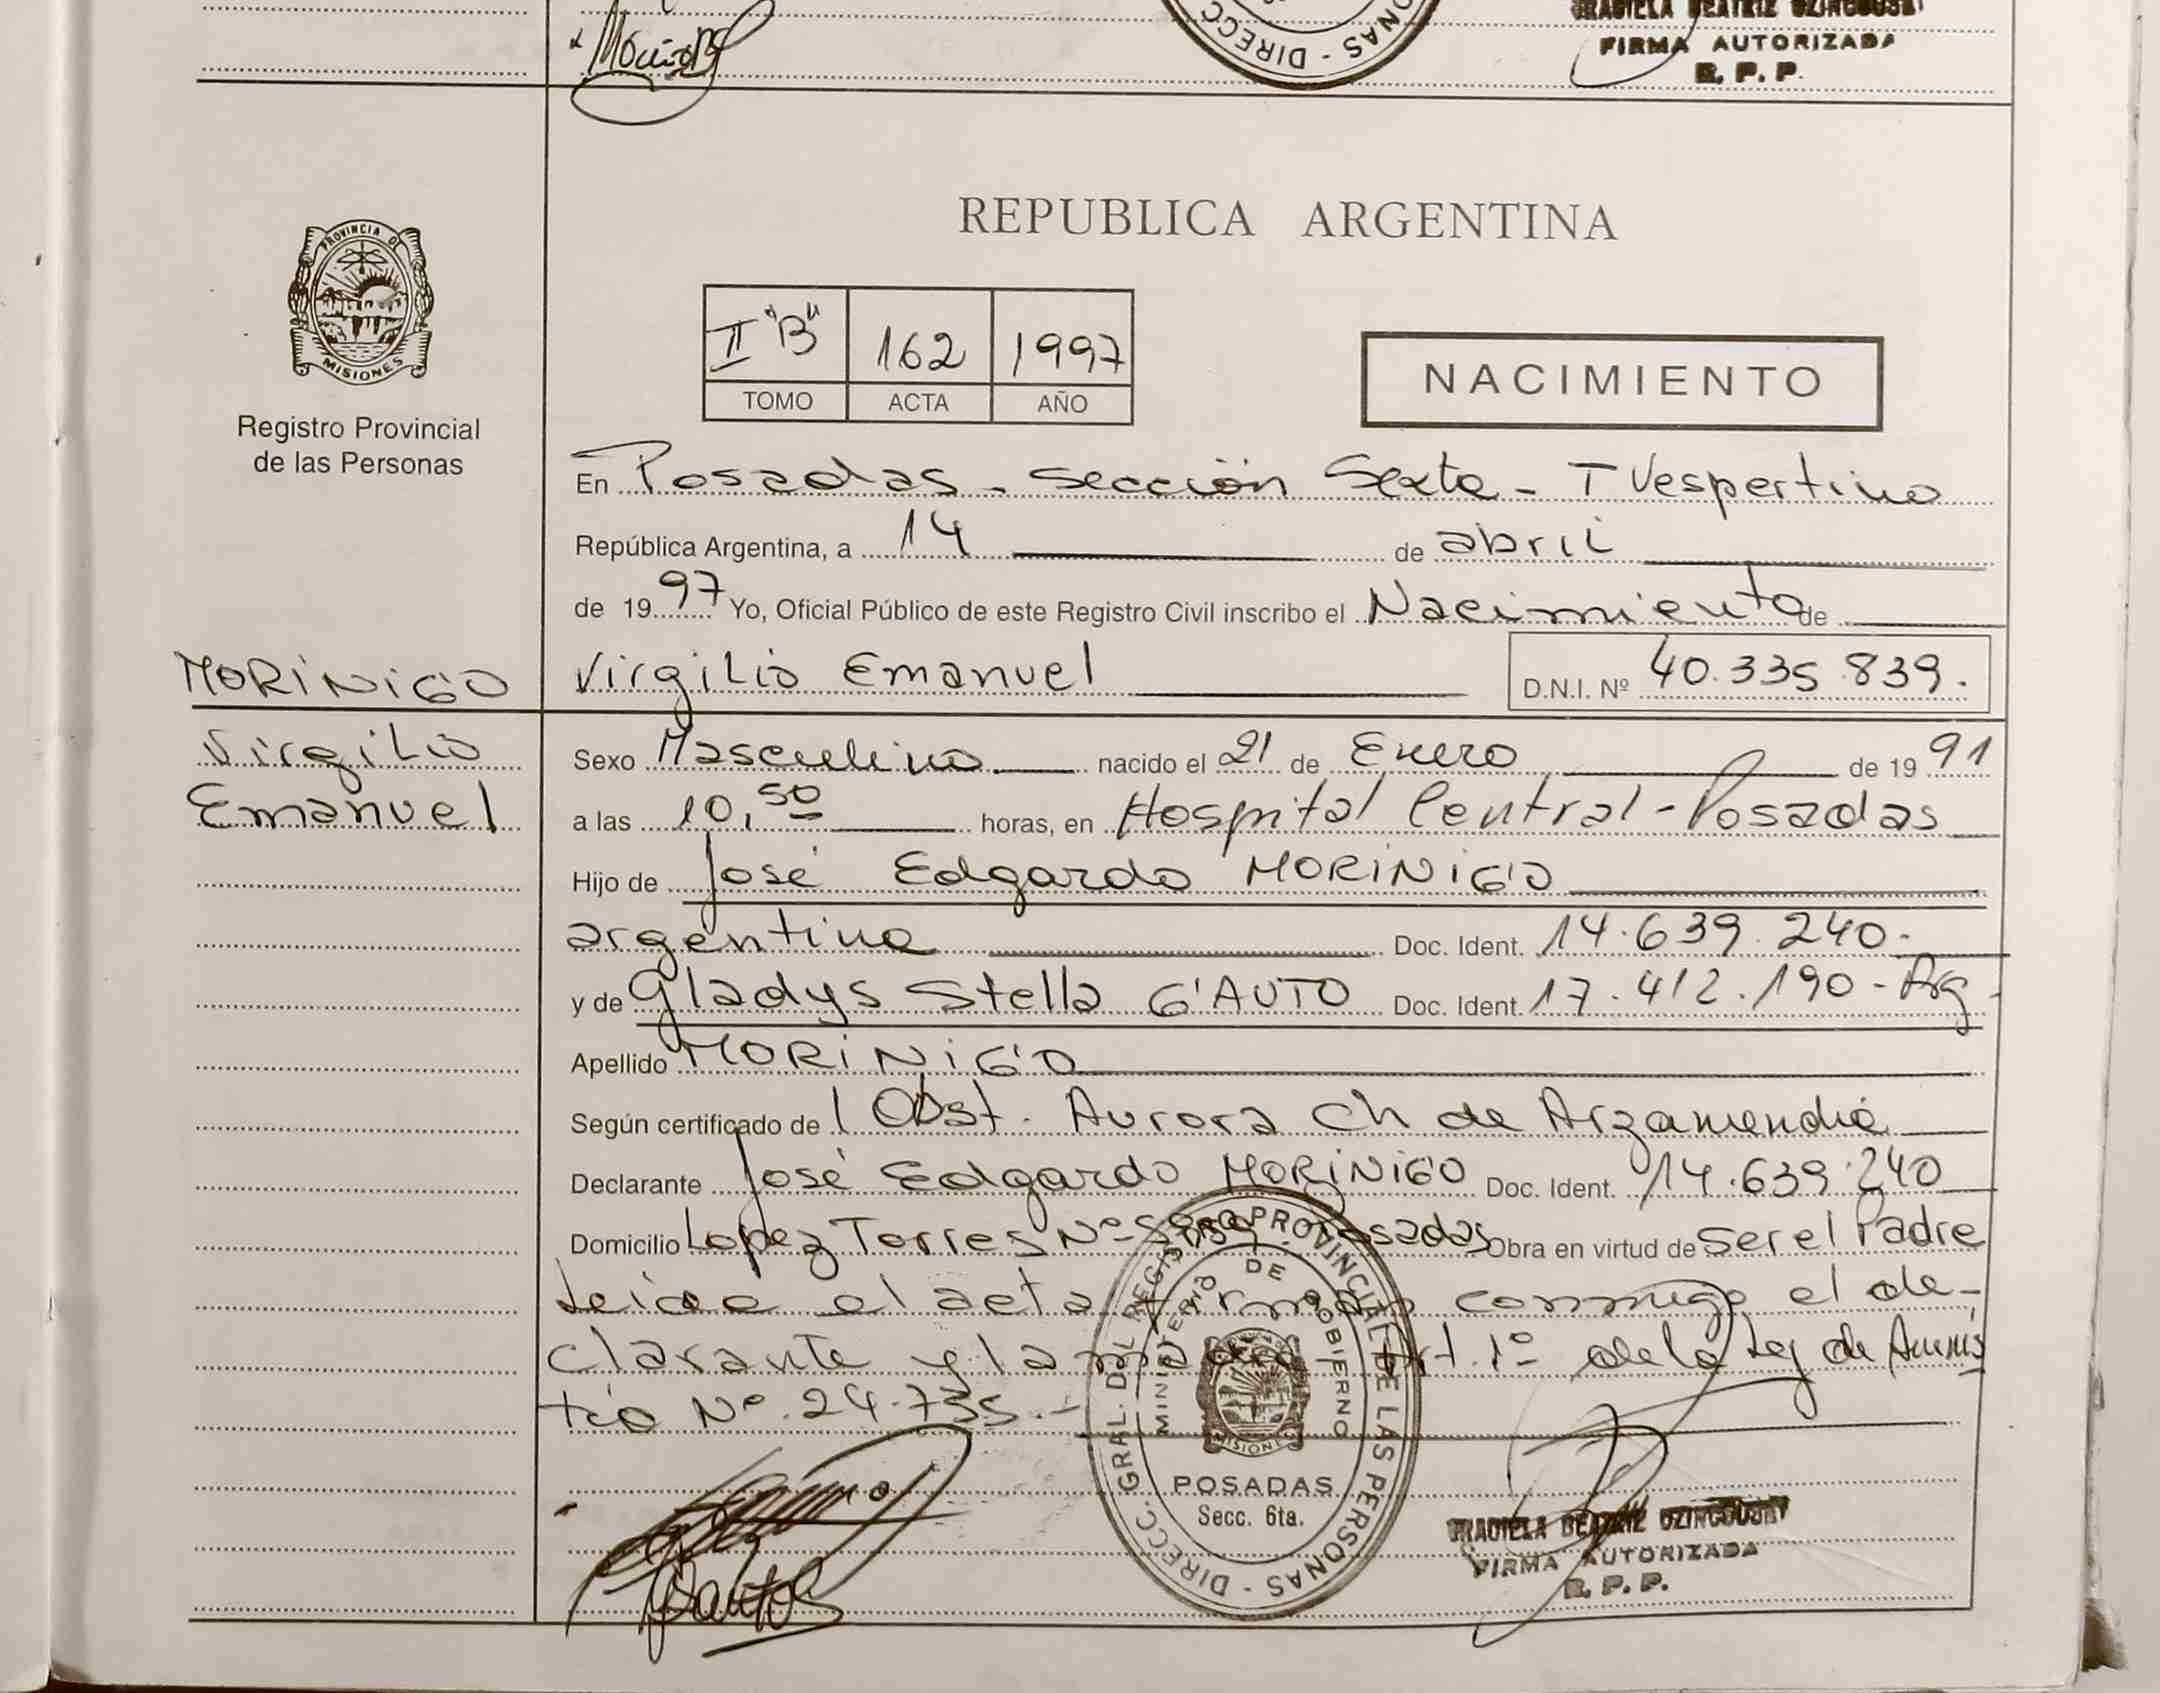 GRACIELA BEATRIZ
FIRMA AUTORIZADA
R. P. P.
PROVINCIA DE
MISIONES
Registro Provincial
de las Personas
MORINIGO
Virgilio
Emanuel
REPUBLICA ARGENTINA
II "B" 162 1997
TOMO ACTA AÑO
NACIMIENTO
En Posadas - Sección Sexta - T Vespertino
República Argentina, a 14 de abril
de 1997 Yo, Oficial Público de este Registro Civil inscribo el Nacimiento de
Virgilio Emanuel D.N.I. Nº 40.335.839.
Sexo Masculino nacido el 21 de Enero de 1991
a las 10,50 horas, en Hospital Central - Posadas
Hijo de José Edgardo MORINIGO
argentino Doc. Ident. 14.639.240-
y de Gladys Stella G'AUTO Doc. Ident. 17.412.190 - Arg
Apellido MORINIGO
Según certificado de l Obst. Aurora Ch de Arzamendia
Declarante José Edgardo MORINIGO Doc. Ident. 14.639.240
Domicilio Lopez Torres Nº Posadas Obra en virtud de Ser el Padre
Leida el acta firman conmigo el de-
clarante y la madre Art. 1º de la Ley de Amnis
tia Nº 24.755.-
DIRECC. GRAL. DEL REGISTRO PROVINCIAL DE LAS PERSONAS
MINISTERIO DE GOBIERNO
MISIONES
POSADAS
Secc. 6ta.
GRACIELA BEATRIZ
FIRMA AUTORIZADA
R. P. P.